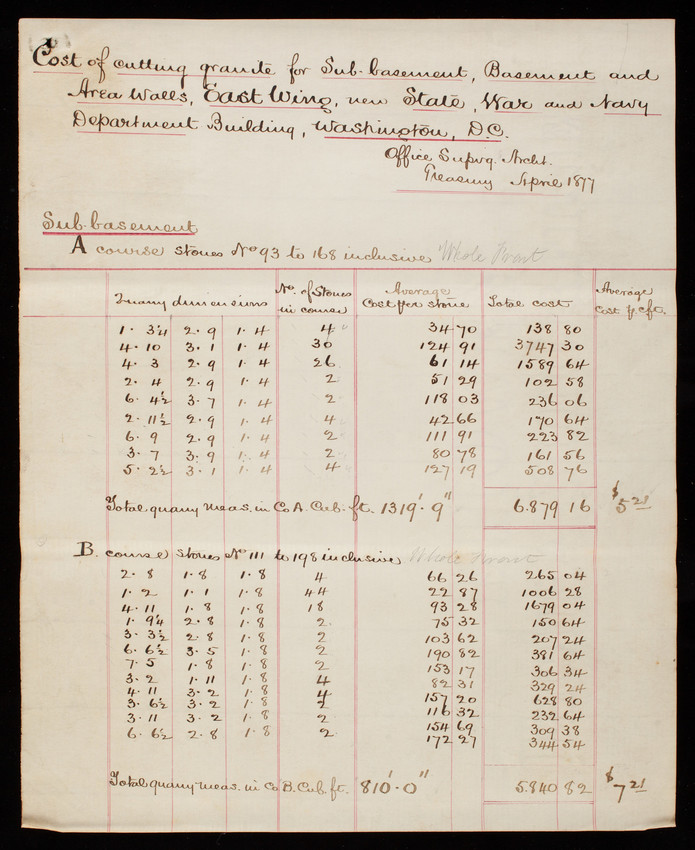 Cost of cutting granite for Sub-basement, Basement and
Area Walls, East Wing, new State, War and Navy
Department Building, Washington, D.C.
Office Supvg. Archt.
Treasury April 1877
Sub-basement
A course stones No 93 to 168 inclusive Whole Front
Quarry dimensions No. of Stones in course Average Cost per stone Total cost Average Cost p. cft.
1·3¼ 2·9 1·4 4 34 70 138 80
4·10 3·1 1·4 30 124 91 3747 30
4·3 2·9 1·4 26 61 14 1589 64
2·4 2·9 1·4 2 51 29 102 58
6·4½ 3·7 1·4 2 118 03 236 06
2·11½ 2·9 1·4 4 42 66 170 64
6·9 2·9 1·4 2 111 91 223 82
3·7 3·9 1·4 2 80 78 161 56
5·2½ 3·1 1·4 4 127 19 508 76
Total quarry meas. in Co A. Cub. ft. 1319'·9" 6.879 16 $5 21
B. course stones No 111 to 198 inclusive Whole Front
2·8 1·8 1·8 4 66 26 265 04
1·2 1·1 1·8 44 22 87 1006 28
4·11 1·8 1·8 18 93 28 1679 04
1·9¼ 2·8 1·8 2 75 32 150 64
3·3½ 2·8 1·8 2 103 62 207 24
6·6½ 3·5 1·8 2 190 82 381 64
7·5 1·8 1·8 2 153 17 306 34
3·2 1·11 1·8 4 82 31 329 24
4·11 3·2 1·8 4 157 20 628 80
3·6½ 3·2 1·8 2 116 32 232 64
3·11 3·2 1·8 2 154 69 309 38
6·6½ 2·8 1·8 2 172 27 344 54
Total quarry meas. in Co B. Cub. ft. 810'·0" 5.840 82 $7 21